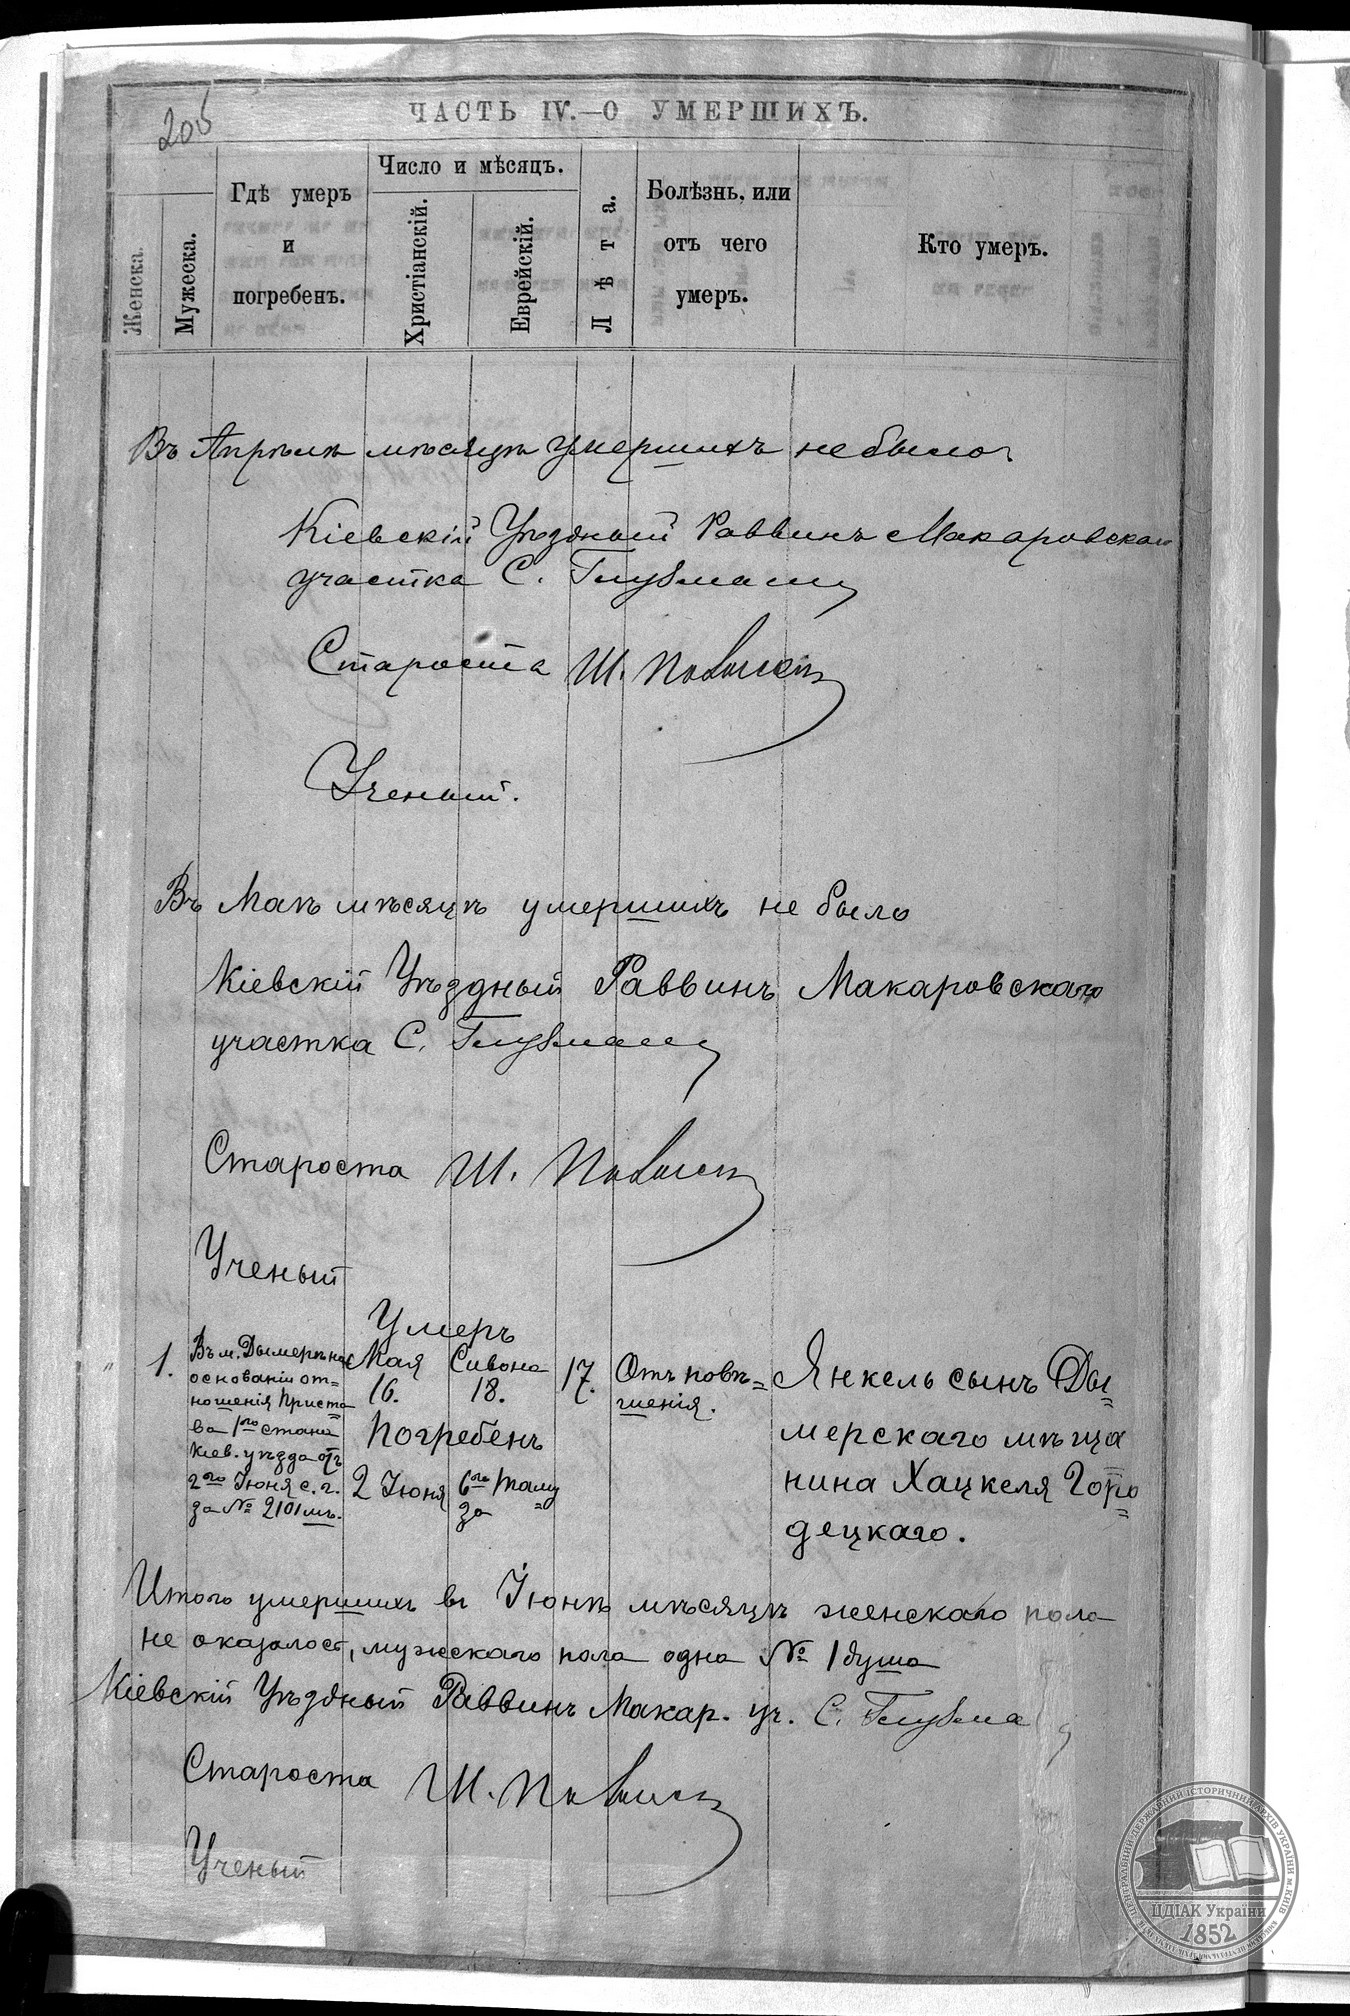 205
ЧАСТЬ IV.—О УМЕРШИХЪ.
Женска.
Мужеска.
Гдѣ умеръ
и
погребенъ.
Число и мѣсяцъ.
Христіанскій.
Еврейскій.
Лѣта.
Болѣзнь, или
отъ чего
умеръ.
Кто умеръ.
Въ Апрѣлѣ мѣсяцѣ умершихъ не было
Кіевскій Уѣздный Раввинъ Макаровскаго
участка С. Глузманъ
Староста Ш.
Ученый.
Въ Маѣ мѣсяцѣ умершихъ не было
Кіевскій Уѣздный Раввинъ Макаровскаго
участка С. Глузманъ
Староста Ш.
Ученый
Умеръ
" 1.
Въ м. Дымерѣ на
основаніи от=
ношенія Приста=
ва 1го стана
Кіев. уѣзда отъ
2го Іюня с. г.
за № 2101мъ.
Мая
16.
Сивона
18.
Погребенъ
2 Іюня
6го Таму=
за
17.
Отъ повѣ=
шенія.
Янкель сынъ Ды=
мерскаго мѣща
нина Хацкеля Горо=
децкаго.
Итого умершихъ въ Іюнѣ мѣсяцѣ женскаго пола
не оказалось, мужскаго пола одна № 1 душа
Кіевскій Уѣздный Раввинъ Макар. уч. С. Глузма
Староста Ш.
Ученый
ЦЕНТРАЛЬНИЙ ДЕРЖАВНИЙ ІСТОРИЧНИЙ АРХІВ УКРАЇНИ М.КИЇВ
ЦДІАК України
1852